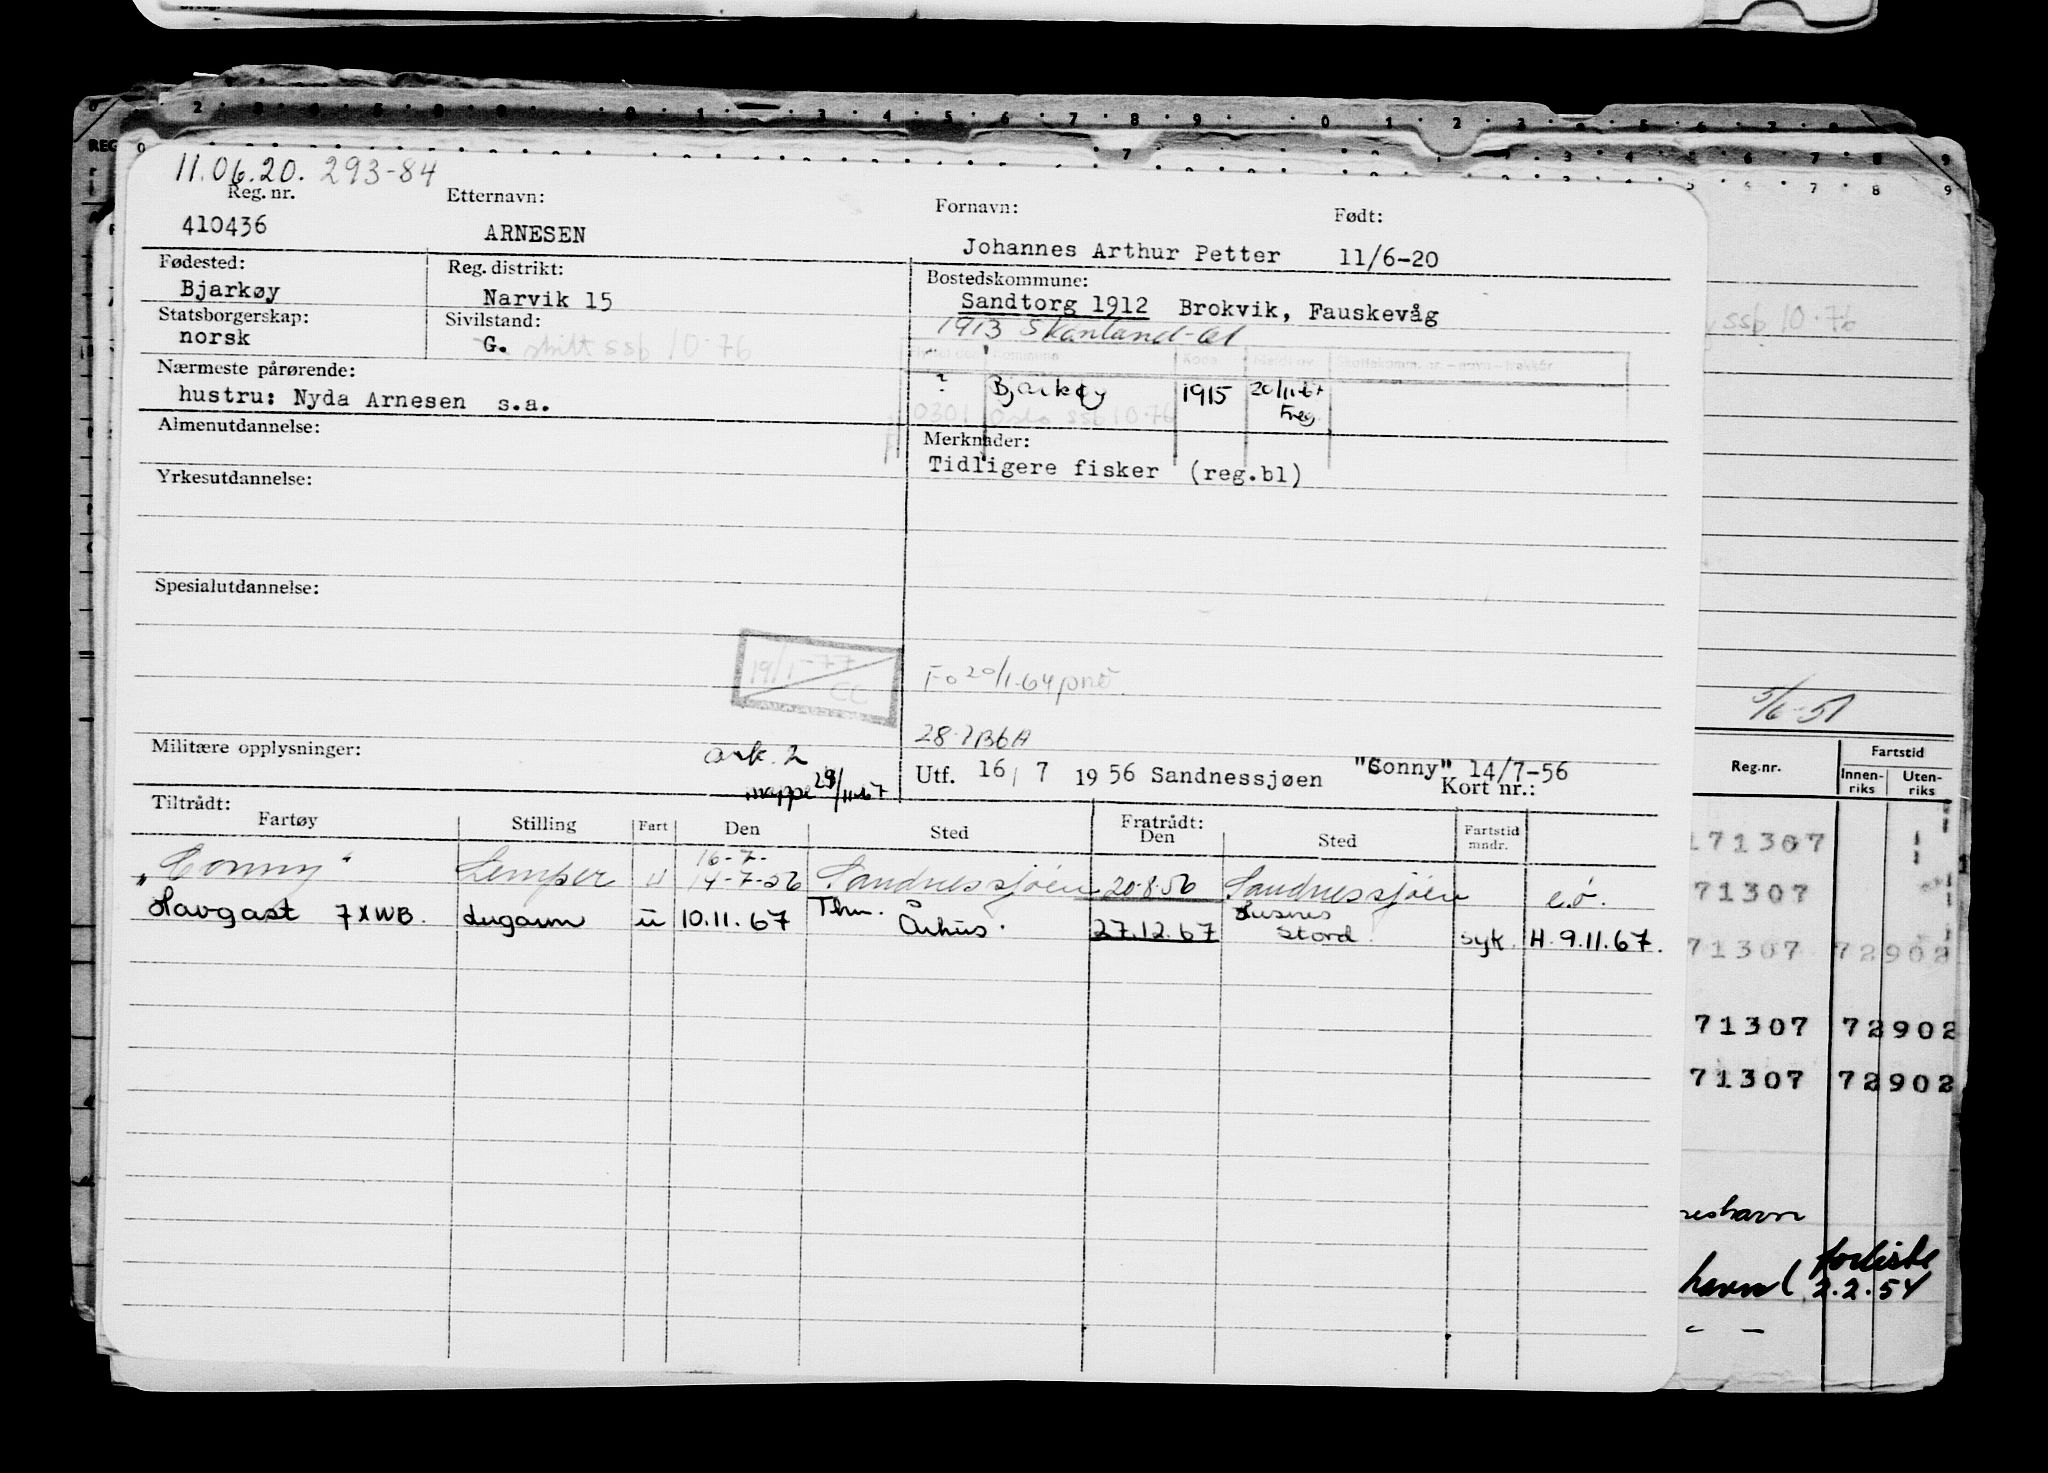 11.06.20. 293-84
Reg. nr. Etternavn: Fornavn: Født:
410436 ARNESEN Johannes Arthur Petter 11/6-20
Fødested: Reg. distrikt: Bostedskommune:
Bjarkøy Narvik 15 Sandtorg 1912 Brokvik, Fauskevåg
Statsborgerskap: Sivilstand: 1913 Skånland
norsk G. skilt ssb 10.76
Nærmeste pårørende:
hustru: Nyda Arnesen s.a. ? Bjarkøy 1915 20/11-67 Freg.
0301 Oslo ssb 10.76
Almenutdannelse: Merknader:
Tidligere fisker (reg.bl)
Yrkesutdannelse:
Spesialutdannelse:
19/1-77
CC
Fo 20/1-64
Militære opplysninger: ark. 2 28.7B6A
mappe 29/11-67 Utf. 16/7 1956 Sandnessjøen "Conny" 14/7-56
Kort nr.:
Tiltrådt: Fratrådt:
Fartøy Stilling Fart Den Sted Den Sted Fartstid mndr.
16-7-
"Conny" Lemper u 14-7-56 Sandnessjøen 20.8.56 Sandnessjøen e.ø.
Havgast 7XWB. dugaun u 10.11.67 Thm. Århus. 27.12.67 Husnes Stord. syk. H. 9.11.67.
ssb 10.76
5/6-51
Reg.nr. Fartstid
Innen-riks Uten-riks
171307
71307
71307 72902
71307 72902
71307 72902
havn
forliste
2.2.54